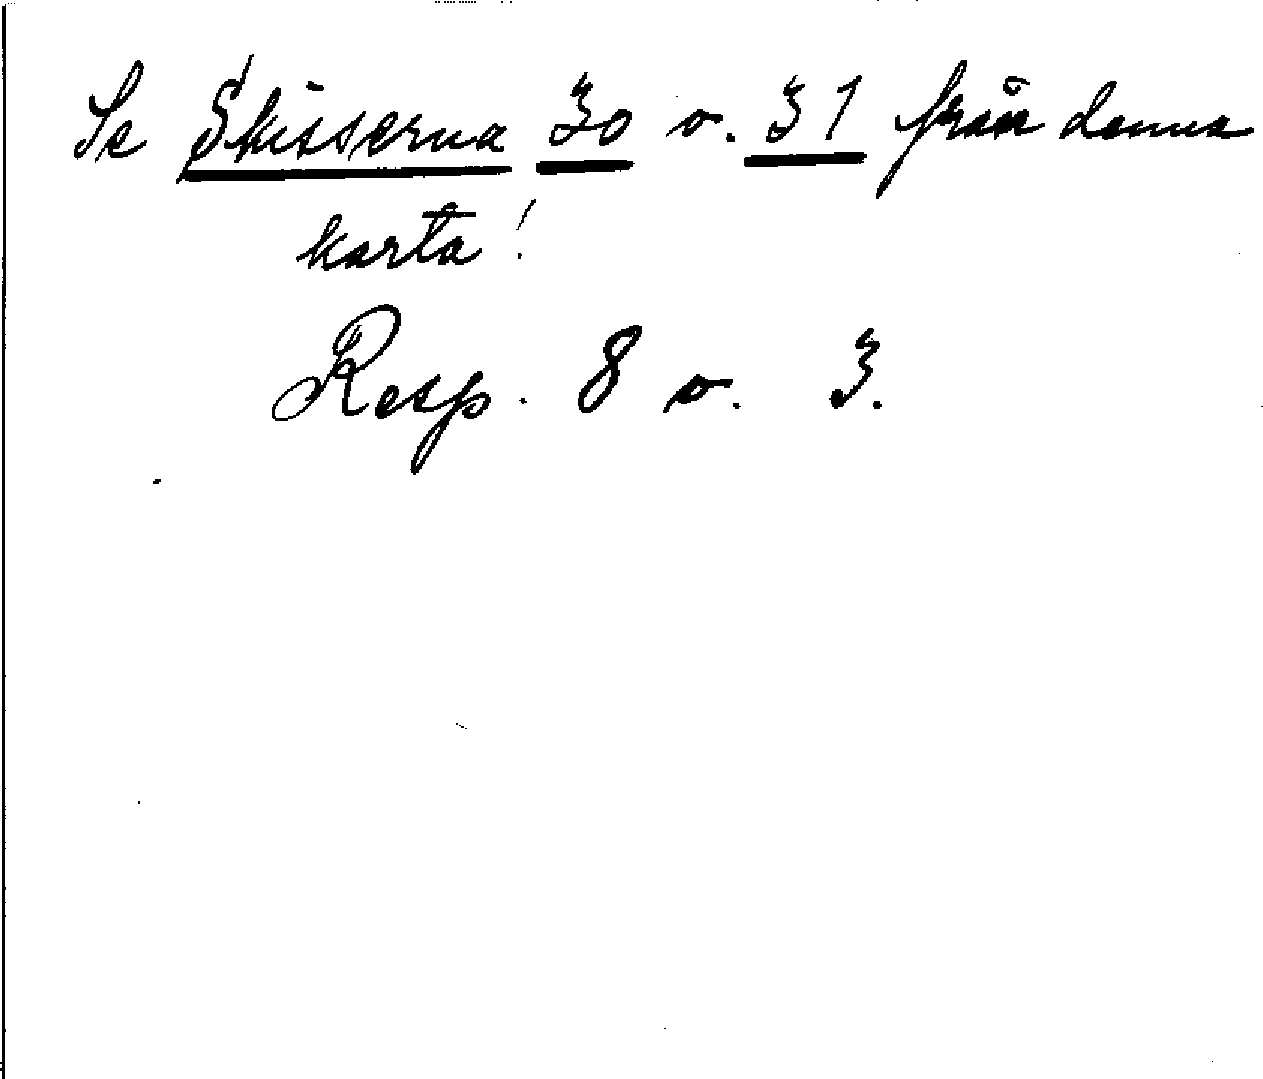 Se Skisserna 30 o. 31 från denna
karta!
Resp. 8 o. 3.